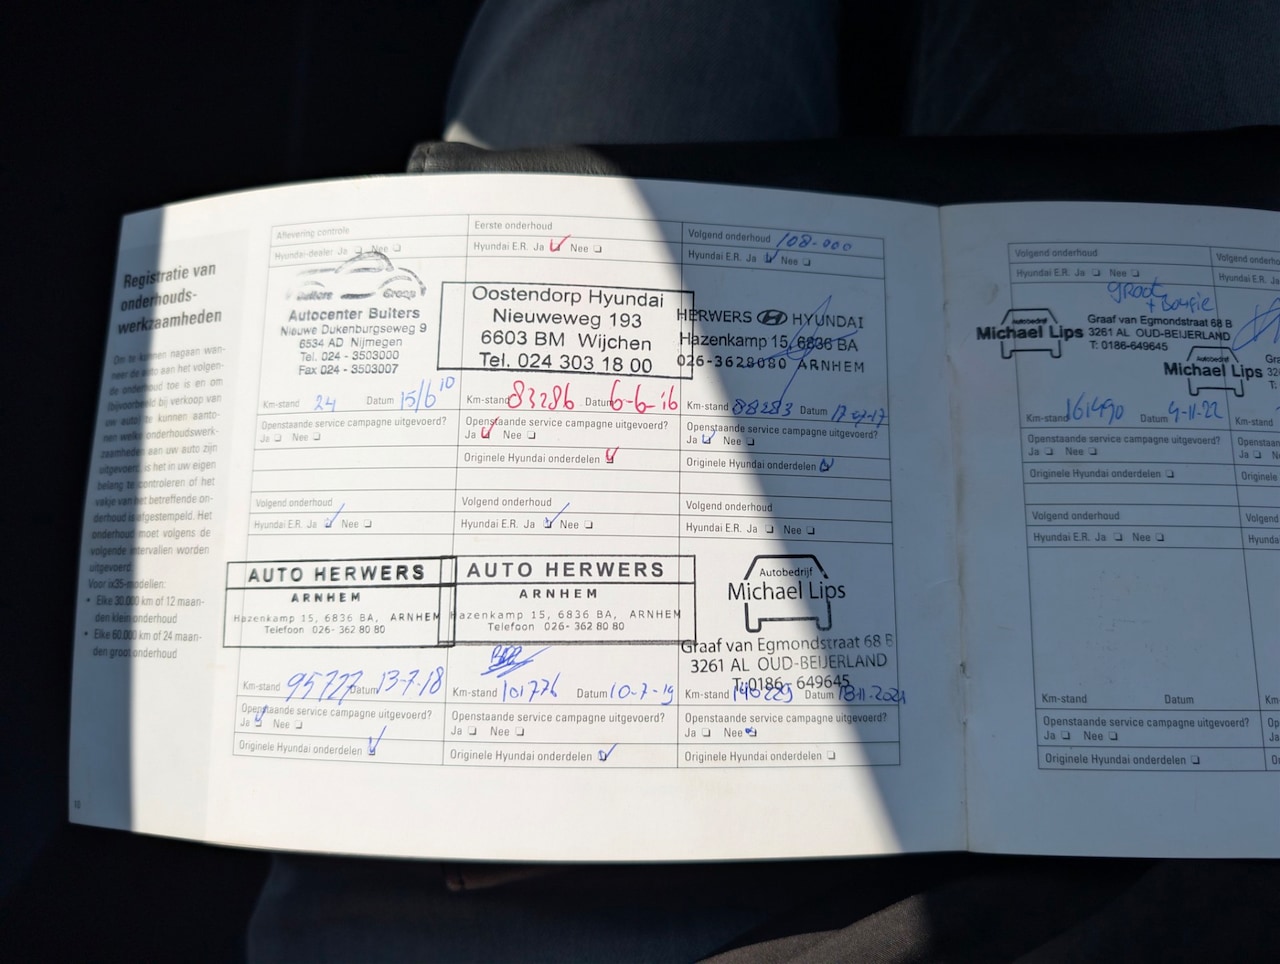 Registratie van
onderhouds-
werkzaamheden
Om te kunnen nagaan wan-
neer de auto aan het volgen-
de onderhoud toe is en om
(bijvoorbeeld bij verkoop van
uw auto) te kunnen aanto-
nen welke onderhoudswerk-
zaamheden aan uw auto zijn
uitgevoerd, is het in uw eigen
belang te controleren of het
vakje van het betreffende on-
derhoud is afgestempeld. Het
onderhoud moet volgens de
volgende intervallen worden
uitgevoerd:
Voor ix35-modellen:
• Elke 30.000 km of 12 maan-
den klein onderhoud
• Elke 60.000 km of 24 maan-
den groot onderhoud
10
Aflevering controle
Hyundai-dealer Ja ❏ Nee ❏
Bulters Group
Autocenter Bulters
Nieuwe Dukenburgseweg 9
6534 AD Nijmegen
Tel. 024 - 3503000
Fax 024 - 3503007
Km-stand 24 Datum 15/6 10
Openstaande service campagne uitgevoerd?
Ja ❏ Nee ❏
Eerste onderhoud
Hyundai E.R. Ja ❏ Nee ❏
Oostendorp Hyundai
Nieuweweg 193
6603 BM Wijchen
Tel. 024 303 18 00
Km-stand 83286 Datum 6-6-'16
Openstaande service campagne uitgevoerd?
Ja ❏ Nee ❏
Originele Hyundai onderdelen ❏
Volgend onderhoud 108-000
Hyundai E.R. Ja ❏ Nee ❏
HERWERS HYUNDAI
Hazenkamp 15, 6836 BA
026-3628080 ARNHEM
Km-stand 88283 Datum
Openstaande service campagne uitgevoerd?
Ja ❏ Nee ❏
Originele Hyundai onderdelen ❏
Volgend onderhoud
Hyundai E.R. Ja ❏ Nee ❏
AUTO HERWERS
ARNHEM
Hazenkamp 15, 6836 BA, ARNHEM
Telefoon 026- 362 80 80
Km-stand 95727 Datum 13-7-18
Openstaande service campagne uitgevoerd?
Ja ❏ Nee ❏
Originele Hyundai onderdelen ❏
Volgend onderhoud
Hyundai E.R. Ja ❏ Nee ❏
AUTO HERWERS
ARNHEM
Hazenkamp 15, 6836 BA, ARNHEM
Telefoon 026- 362 80 80
Km-stand 101776 Datum 10-7-19
Openstaande service campagne uitgevoerd?
Ja ❏ Nee ❏
Originele Hyundai onderdelen ❏
Volgend onderhoud
Hyundai E.R. Ja ❏ Nee ❏
Autobedrijf
Michael Lips
Graaf van Egmondstraat 68 B
3261 AL OUD-BEIJERLAND
T: 0186 - 649645
Km-stand 140229 Datum 18-11-2021
Openstaande service campagne uitgevoerd?
Ja ❏ Nee ❏
Originele Hyundai onderdelen ❏
Volgend onderhoud
Hyundai E.R. Ja ❏ Nee ❏
groot
+ Bougie
Autobedrijf
Michael Lips
Graaf van Egmondstraat 68 B
3261 AL OUD-BEIJERLAND
T: 0186-649645
Km-stand 161490 Datum 4-11-22
Openstaande service campagne uitgevoerd?
Ja ❏ Nee ❏
Originele Hyundai onderdelen ❏
Volgend onderhoud
Hyundai E.R. Ja
Autobedrijf
Michael Lips
Volgend onderhoud
Hyundai E.R. Ja ❏ Nee ❏
Km-stand Datum
Openstaande service campagne uitgevoerd?
Ja ❏ Nee ❏
Originele Hyundai onderdelen ❏
Volgend
Hyundai E.R.